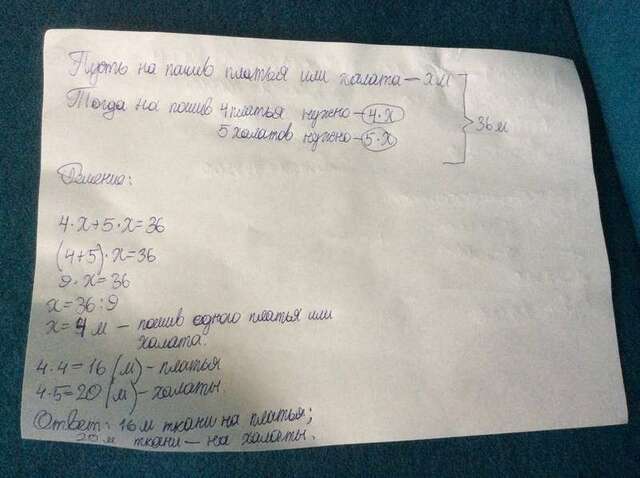 Пусть на пошив платья или халата – x м
Тогда на пошив 4 платья нужно – 4·x
5 халатов нужно – 5·x
36 м
Решение:
4·x+5·x=36
(4+5)·x=36
9·x=36
x=36:9
x=4 м – пошив одного платья или
халата.
4·4=16 (м) - платья
4·5=20 (м) - халаты.
Ответ: 16 м ткани на платья;
20 м ткани – на халаты.